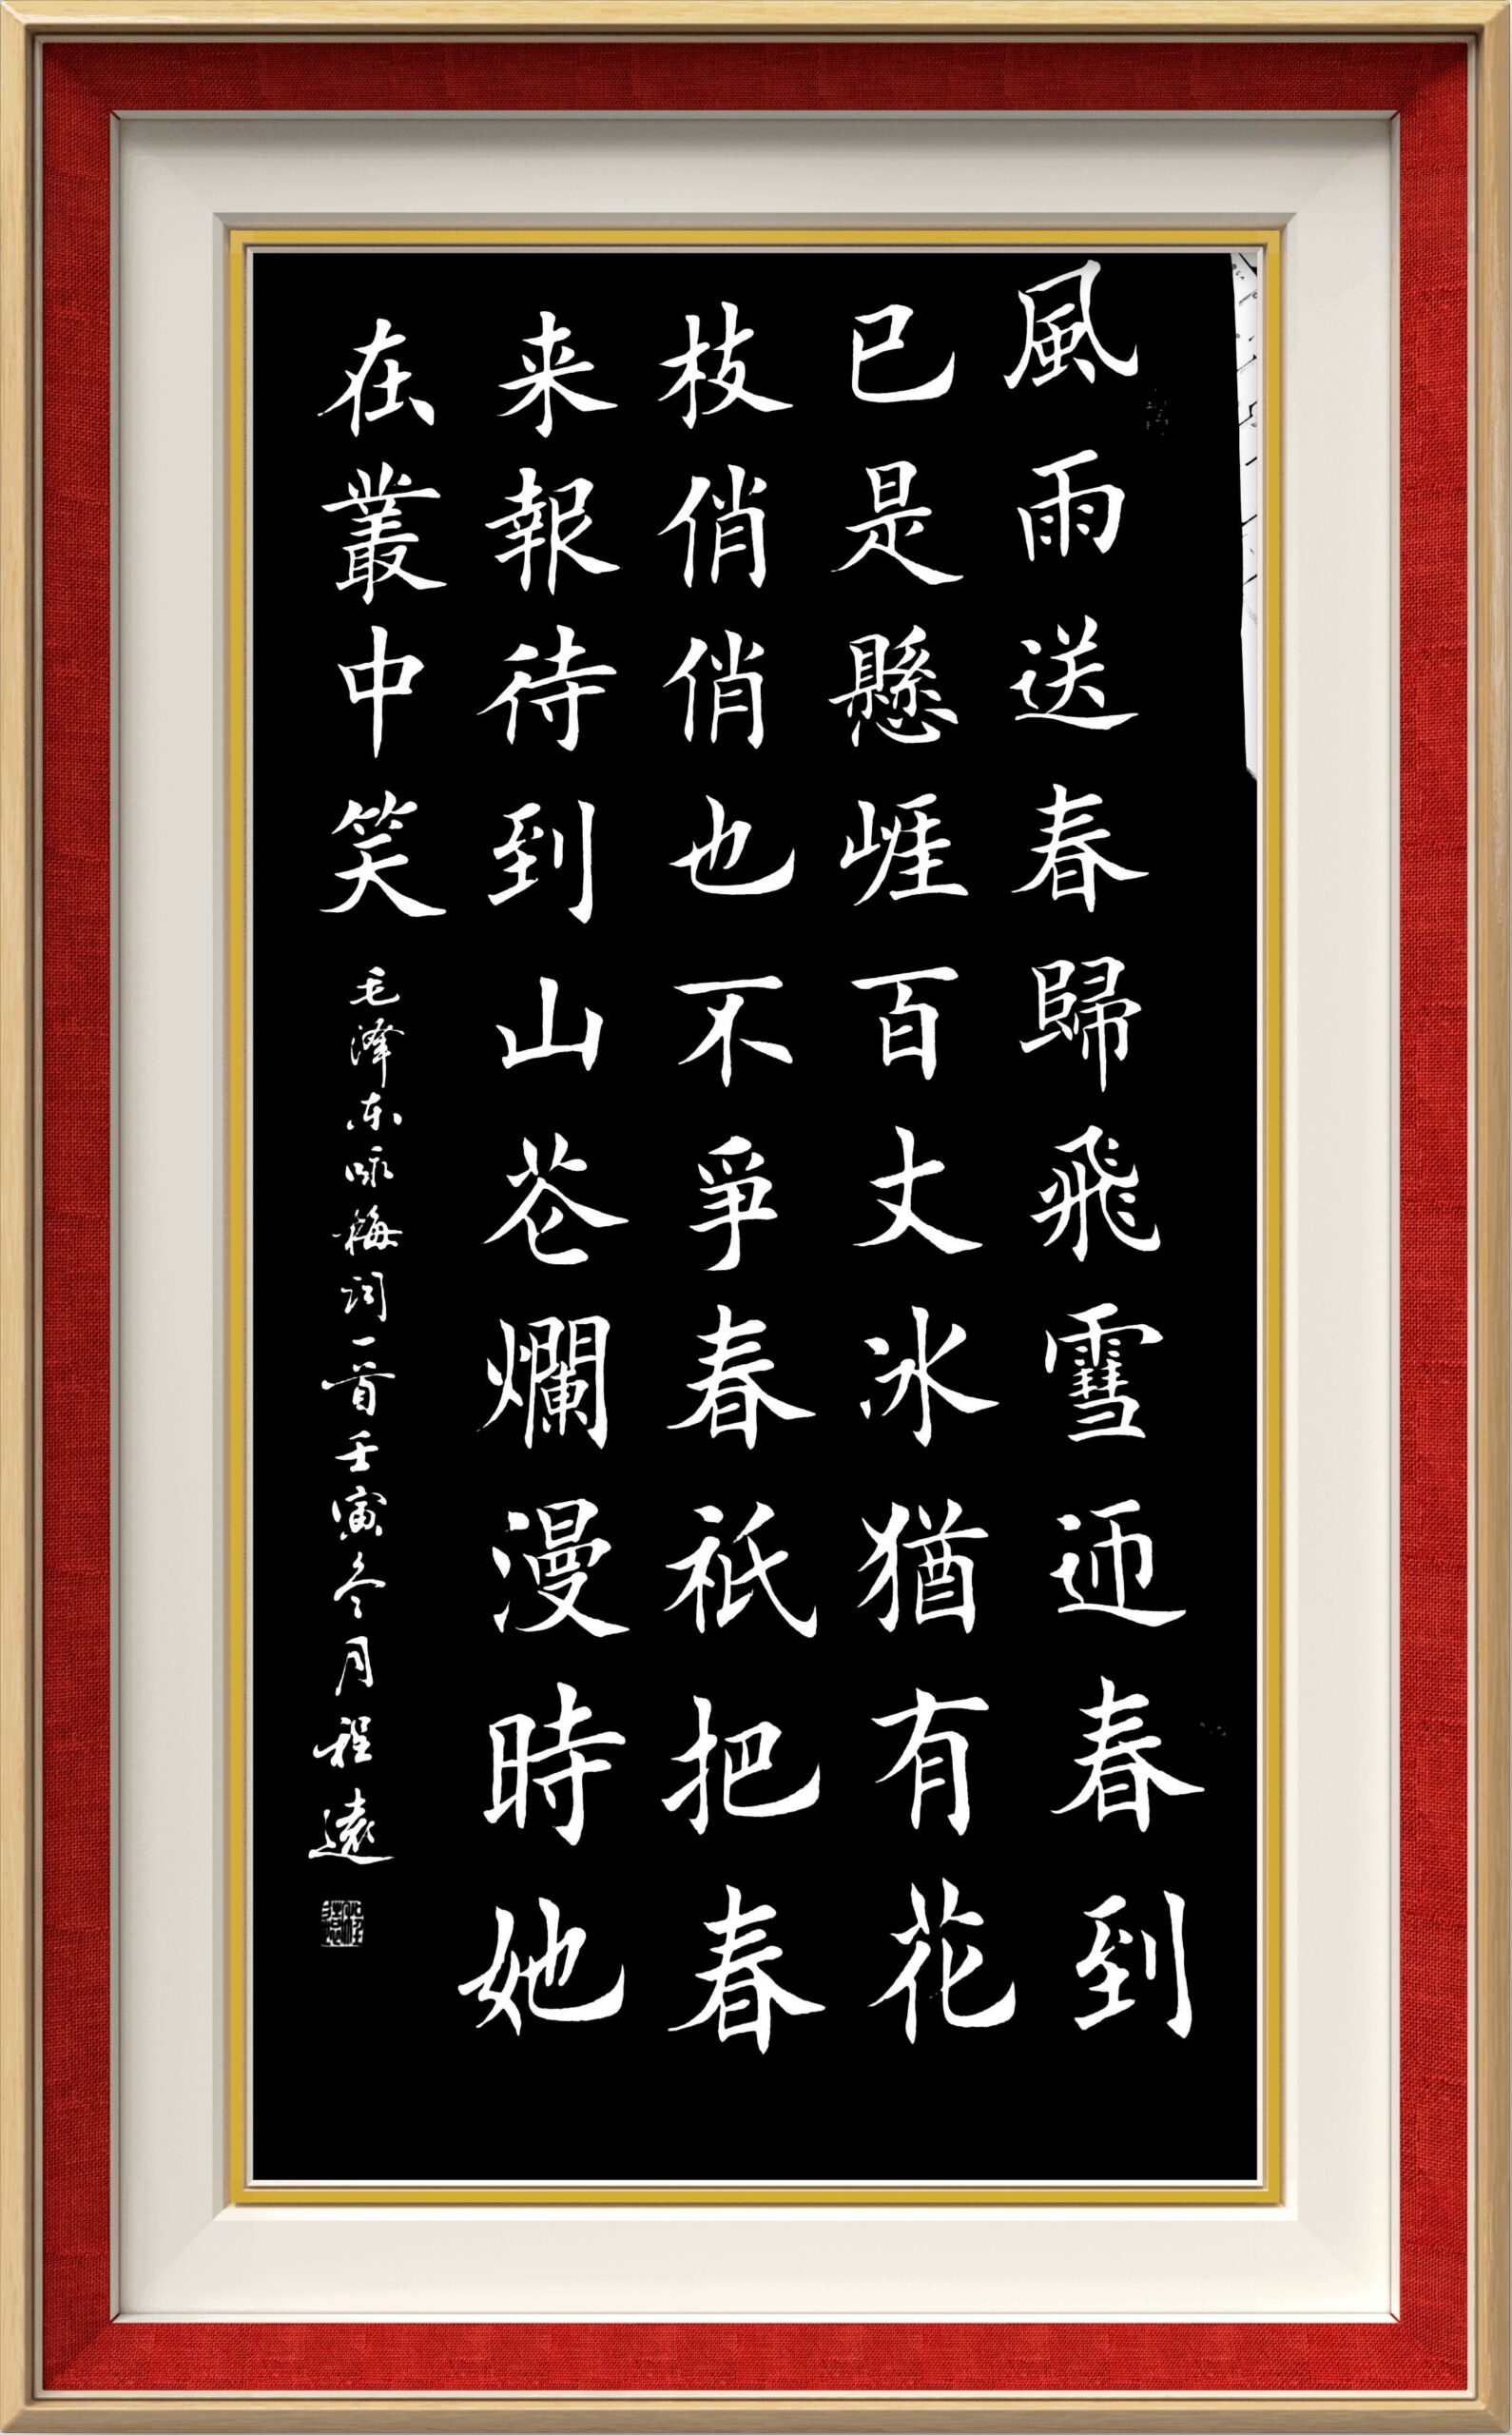 風雨送春歸飛雪迊春到
已是懸崖百丈冰猶有花
枝俏俏也不爭春祇把春
来報待到山花爛漫時她
在叢中笑
毛澤东咏梅词一首壬寅冬月程遠